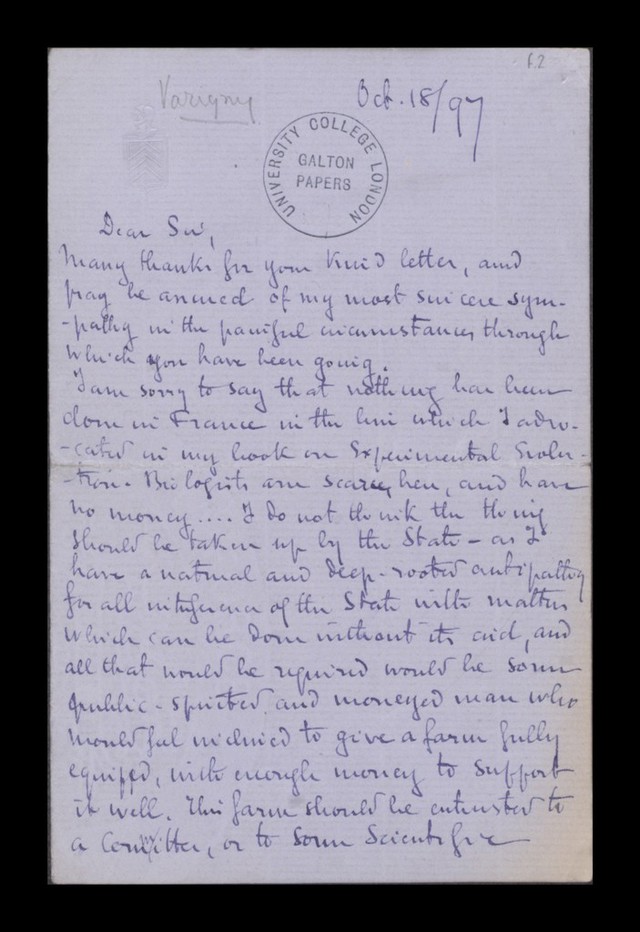 f.2
Varigny
Oct. 18/97
UNIVERSITY COLLEGE LONDON
GALTON
PAPERS
Dear Sir,
Many thanks for your kind letter, and
pray be assured of my most sincere sym-
-pathy in the painful circumstances through
which you have been going.
I am sorry to say that nothing has been
done in France in the line which I advo-
-cated in my book on Experimental Evolu-
-tion. Biologists are scarce, here, and have
no money.... I do not think the thing
should be taken up by the State - as I
have a natural and deep-rooted antipathy
for all interference of the State with matters
which can be done without its aid, and
all that would be required would be some
public-spirited and moneyed man who
would feel inclined to give a farm fully
equipped, with enough money to support
it well. This farm should be entrusted to
a Committee, or to some Scientific